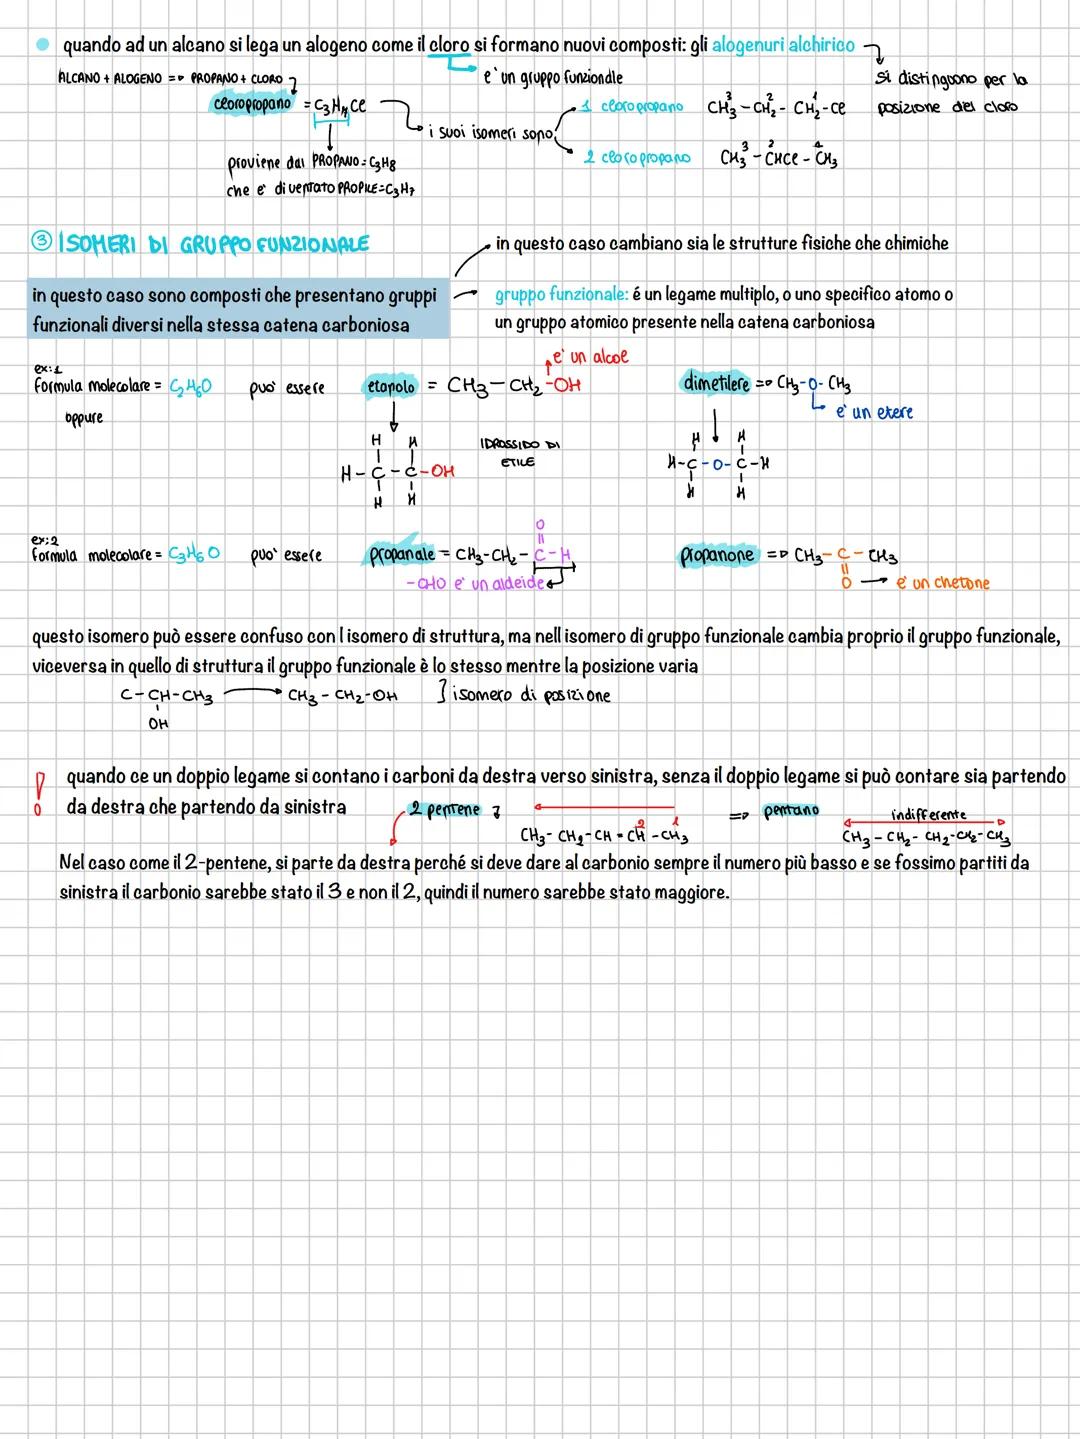 quando ad un alcano si lega un alogeno come il cloro si formano nuovi composti: gli alogenuri alchirico
ALCANO + ALOGENO => PROPANO + CLORO
e' un gruppo funzionale
si distinguono per la
posizione del cloro
cloropropano = C3H7Cl
i suoi isomeri sono:
1 cloropropano
CH3 - CH2 - CH2 - Cl
3 2 1
2 cloropropano
CH3 - CHCl - CH3
3 2 1
proviene dal PROPANO = C3H8
che e' diventato PROPILE = C3H7
③ ISOMERI DI GRUPPO FUNZIONALE
in questo caso cambiano sia le strutture fisiche che chimiche
in questo caso sono composti che presentano gruppi
funzionali diversi nella stessa catena carboniosa
gruppo funzionale: é un legame multiplo, o uno specifico atomo o
un gruppo atomico presente nella catena carboniosa
ex:1
formula molecolare = C2H6O può essere
oppure
etanolo = CH3 - CH2 - OH
e' un alcol
dimetilere => CH3 - O - CH3
e' un etere
H H
H - C - C - OH
H H
IDROSSIDO DI
ETILE
H H
H - C - O - C - H
H H
ex:2
formula molecolare = C3H6O puo' essere
O
propanale = CH3 - CH2 - C - H
- CHO e' un aldeide
propanone => CH3 - C - CH3
O → e' un chetone
questo isomero può essere confuso con l isomero di struttura, ma nell isomero di gruppo funzionale cambia proprio il gruppo funzionale,
viceversa in quello di struttura il gruppo funzionale è lo stesso mentre la posizione varia
C - CH - CH3 → CH3 - CH2 - OH } isomero di posizione
OH
! quando ce un doppio legame si contano i carboni da destra verso sinistra, senza il doppio legame si può contare sia partendo
da destra che partendo da sinistra
2 pentene
2 1
CH3 - CH2 - CH = CH - CH3
=> pentano
indifferente
CH3 - CH2 - CH2 - CH2 - CH3
Nel caso come il 2-pentene, si parte da destra perché si deve dare al carbonio sempre il numero più basso e se fossimo partiti da
sinistra il carbonio sarebbe stato il 3 e non il 2, quindi il numero sarebbe stato maggiore.